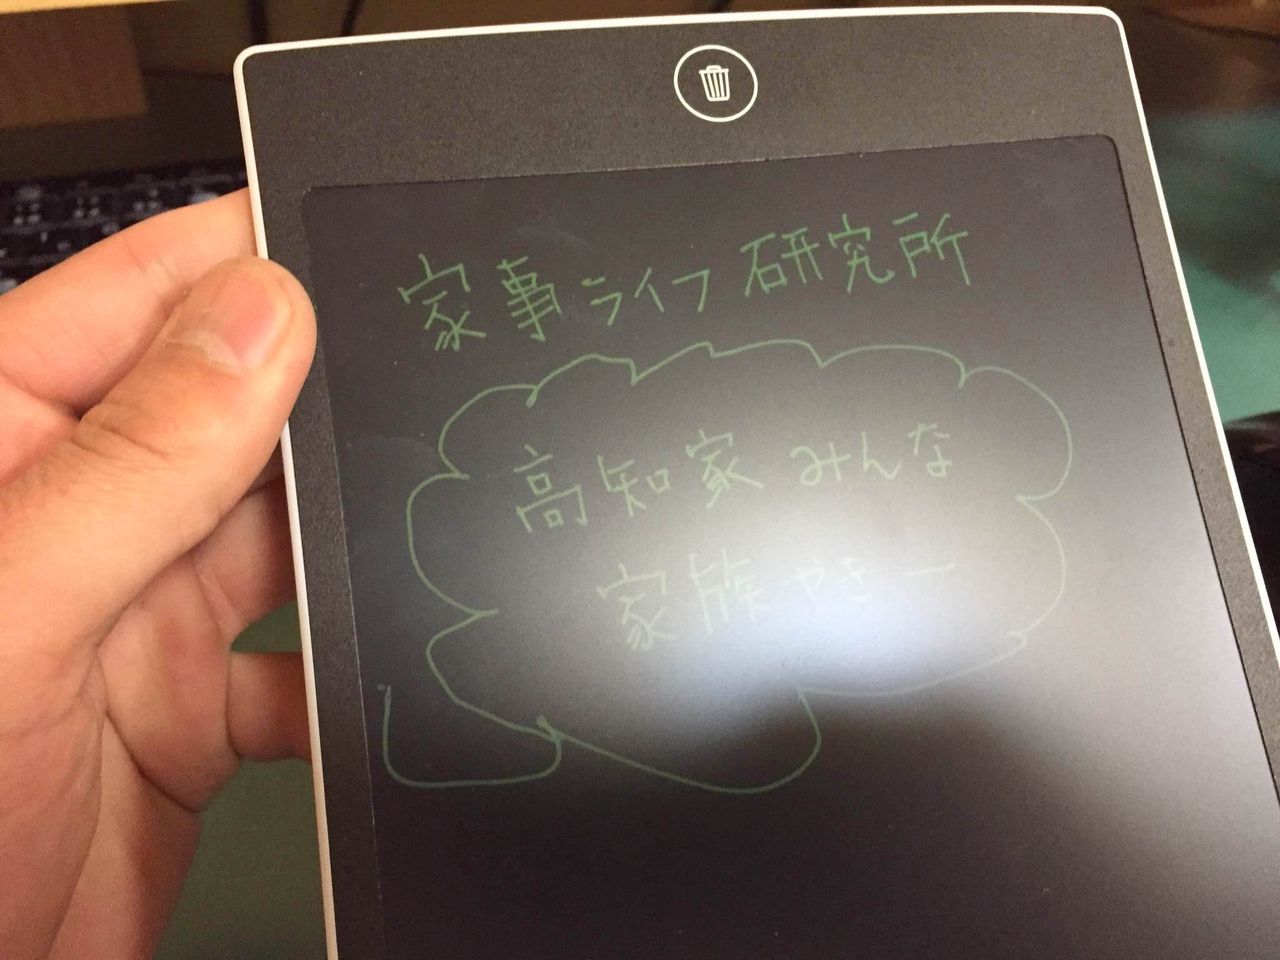 家事ライフ研究所
高知家みんな
家族やきー